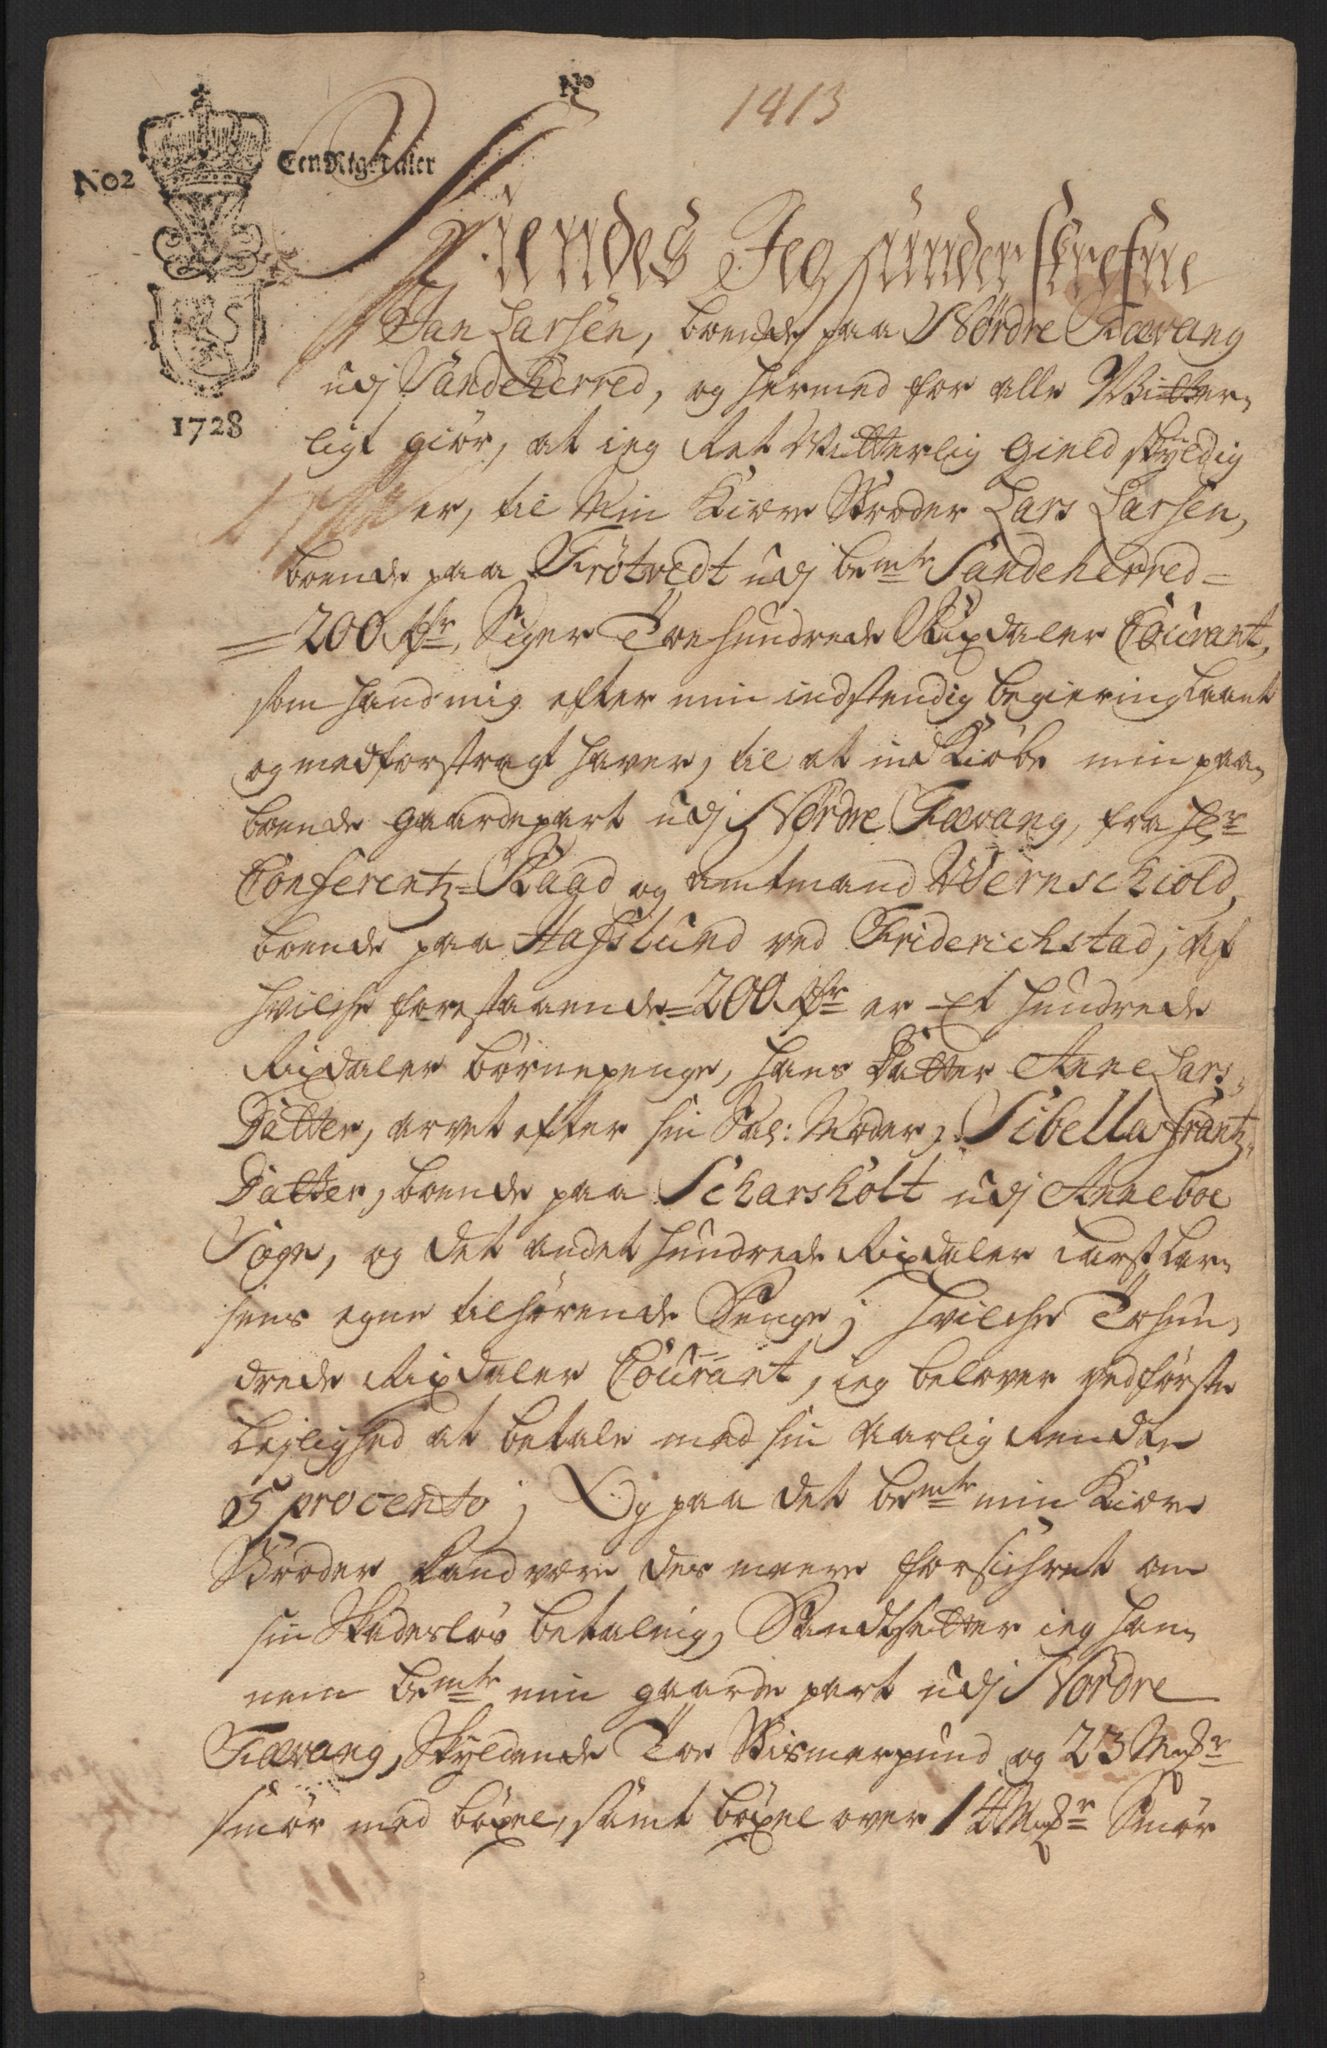 No
1413
No2
Een Rigs Daler
1728
Kiendes Jeg underskrefne
Jan Larsen, boende paa Nordre Fævang
udj Sandeherred, og hermed for alle Witter-
ligt giör, at ieg Ret Witterlig Gield skyldig
er, til Min Kiære Broder Lars Larsen,
boende paa Frötvedt udj bemte Sandeherred =
= 200 Rdr, Siger Toe hundrede Rixdaler Courant,
som hand mig efter min indstendig begiering Laant
og medforstragt haver, til at ind Kiöbe min paa-
boende gaardepart udj Nordre Fævang, fra Hr
Conferentz=Raad og amtmand Wernschiold,
boende paa Hafslund ved Friderichstad; Af
hvilche forestaaende = 200 Rdr er Et hundrede
Rixdaler börnepenge, hans Datter Anne Lars
Datter, arvet efter sin Sal: Moder, Sibella Frantz
Datter, boende paa Scharsholt udj Anneboe
Sogn, og det andet hundrede Rixdaler Larst Lar-
sens egne tilhörende Penge; hvilche Tohun-
drede Rixdaler Courant, ieg belover ved förste
Leylighed at betale med sin Aarlig Rendte
5 procento; Og paa det bemte min Kiære
Broder kand være des meere forsichret om
sin Skadeslös betaling, Pandtsetter ieg han-
nem bemte min gaarde part udj Nordre
Fævang, Skyldende Toe Bismerpund og 23 Mrkr
smör med böxel, samt böxel over 14 Mrkr Smör